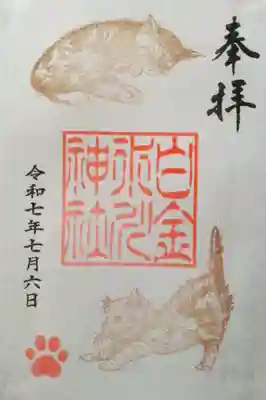 奉拝
白金
氷川
神社
令和七年七月六日